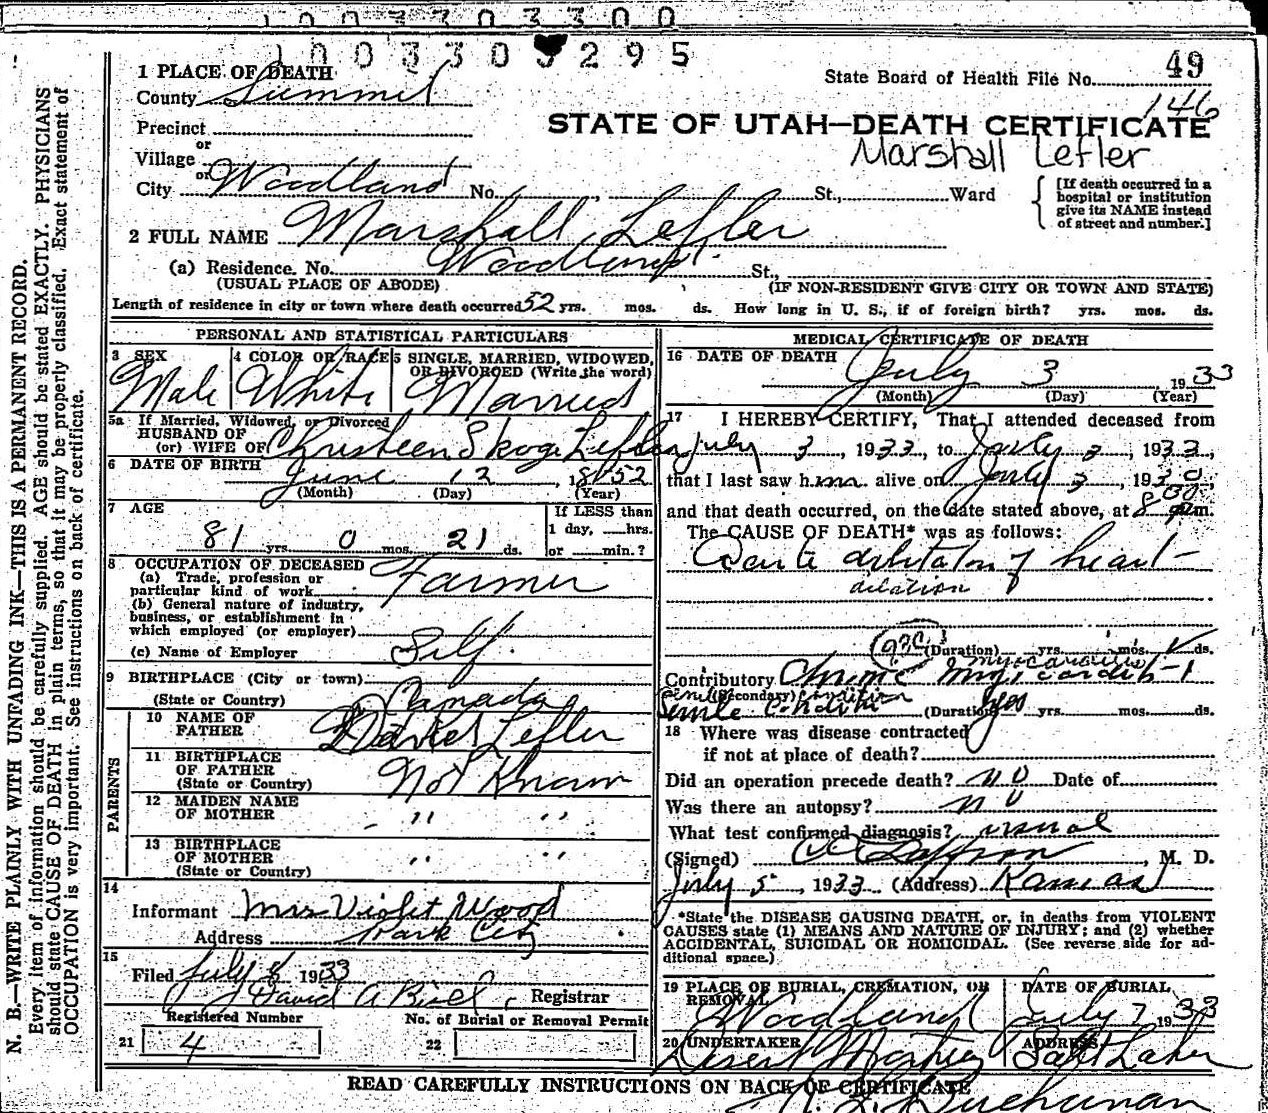 1003303300
1003303295
1 PLACE OF DEATH
County Summit
State Board of Health File No. 49
146
Precinct
or
Village
or
City Woodland No. St., Ward
STATE OF UTAH—DEATH CERTIFICATE
Marshall Lefler
[If death occurred in a hospital or institution give its NAME instead of street and number.]
2 FULL NAME Marshall Lefler
(a) Residence. No. Woodland St.,
(USUAL PLACE OF ABODE) (IF NON-RESIDENT GIVE CITY OR TOWN AND STATE)
Length of residence in city or town where death occurred 52 yrs. mos. ds. How long in U. S., if of foreign birth? yrs. mos. ds.
PERSONAL AND STATISTICAL PARTICULARS
3 SEX 4 COLOR OR RACE 5 SINGLE, MARRIED, WIDOWED,
OR DIVORCED (Write the word)
Male White Married
5a If Married, Widowed, or Divorced
HUSBAND OF
(or) WIFE OF Christeen Skoge Lefler
6 DATE OF BIRTH
June 12, 1852
(Month) (Day) (Year)
7 AGE If LESS than
1 day, hrs.
81 yrs. 0 mos. 21 ds. or min.?
8 OCCUPATION OF DECEASED
(a) Trade, profession or
particular kind of work Farmer
(b) General nature of industry,
business, or establishment in
which employed (or employer)
(c) Name of Employer Self.
9 BIRTHPLACE (City or town)
(State or Country) Canada
PARENTS
10 NAME OF
FATHER Daniel Lefler
11 BIRTHPLACE
OF FATHER
(State or Country) Not Known
12 MAIDEN NAME
OF MOTHER " "
13 BIRTHPLACE
OF MOTHER
(State or Country) " "
14
Informant Mrs Violet Wood
Address Park City
15
Filed July 8 1933
David A Registrar
Registered Number No. of Burial or Removal Permit
21 4 22
MEDICAL CERTIFICATE OF DEATH
16 DATE OF DEATH
July 3 1933
(Month) (Day) (Year)
17 I HEREBY CERTIFY, That I attended deceased from
July 3, 1933, to July 3, 1933,
that I last saw him alive on July 3, 193
and that death occurred, on the date stated above, at 8 30 m.
The CAUSE OF DEATH* was as follows:
Acute of heart
dilation
(Duration) yrs. mos. ds.
Contributory Chronic
myocarditis
(Secondary)
Senile condition
(Duration) yrs. mos. ds.
18 Where was disease contracted
if not at place of death?
Did an operation precede death? no Date of
Was there an autopsy? no
What test confirmed diagnosis? usual
(Signed) , M. D.
July 5, 1933 (Address) Kamas
*State the DISEASE CAUSING DEATH, or, in deaths from VIOLENT
CAUSES state (1) MEANS AND NATURE OF INJURY; and (2) whether
ACCIDENTAL, SUICIDAL OR HOMICIDAL. (See reverse side for ad-
ditional space.)
19 PLACE OF BURIAL, CREMATION, OR
REMOVAL DATE OF BURIAL
Woodland July 7 1933
20 UNDERTAKER ADDRESS
Deseret Mortuary Salt Lake
READ CAREFULLY INSTRUCTIONS ON BACK OF CERTIFICATE
Buchanan
N. B.—WRITE PLAINLY WITH UNFADING INK—THIS IS A PERMANENT RECORD.
Every item of information should be carefully supplied. AGE should be stated EXACTLY. PHYSICIANS
should state CAUSE OF DEATH in plain terms, so that it may be properly classified. Exact statement of
OCCUPATION is very important. See instructions on back of certificate.